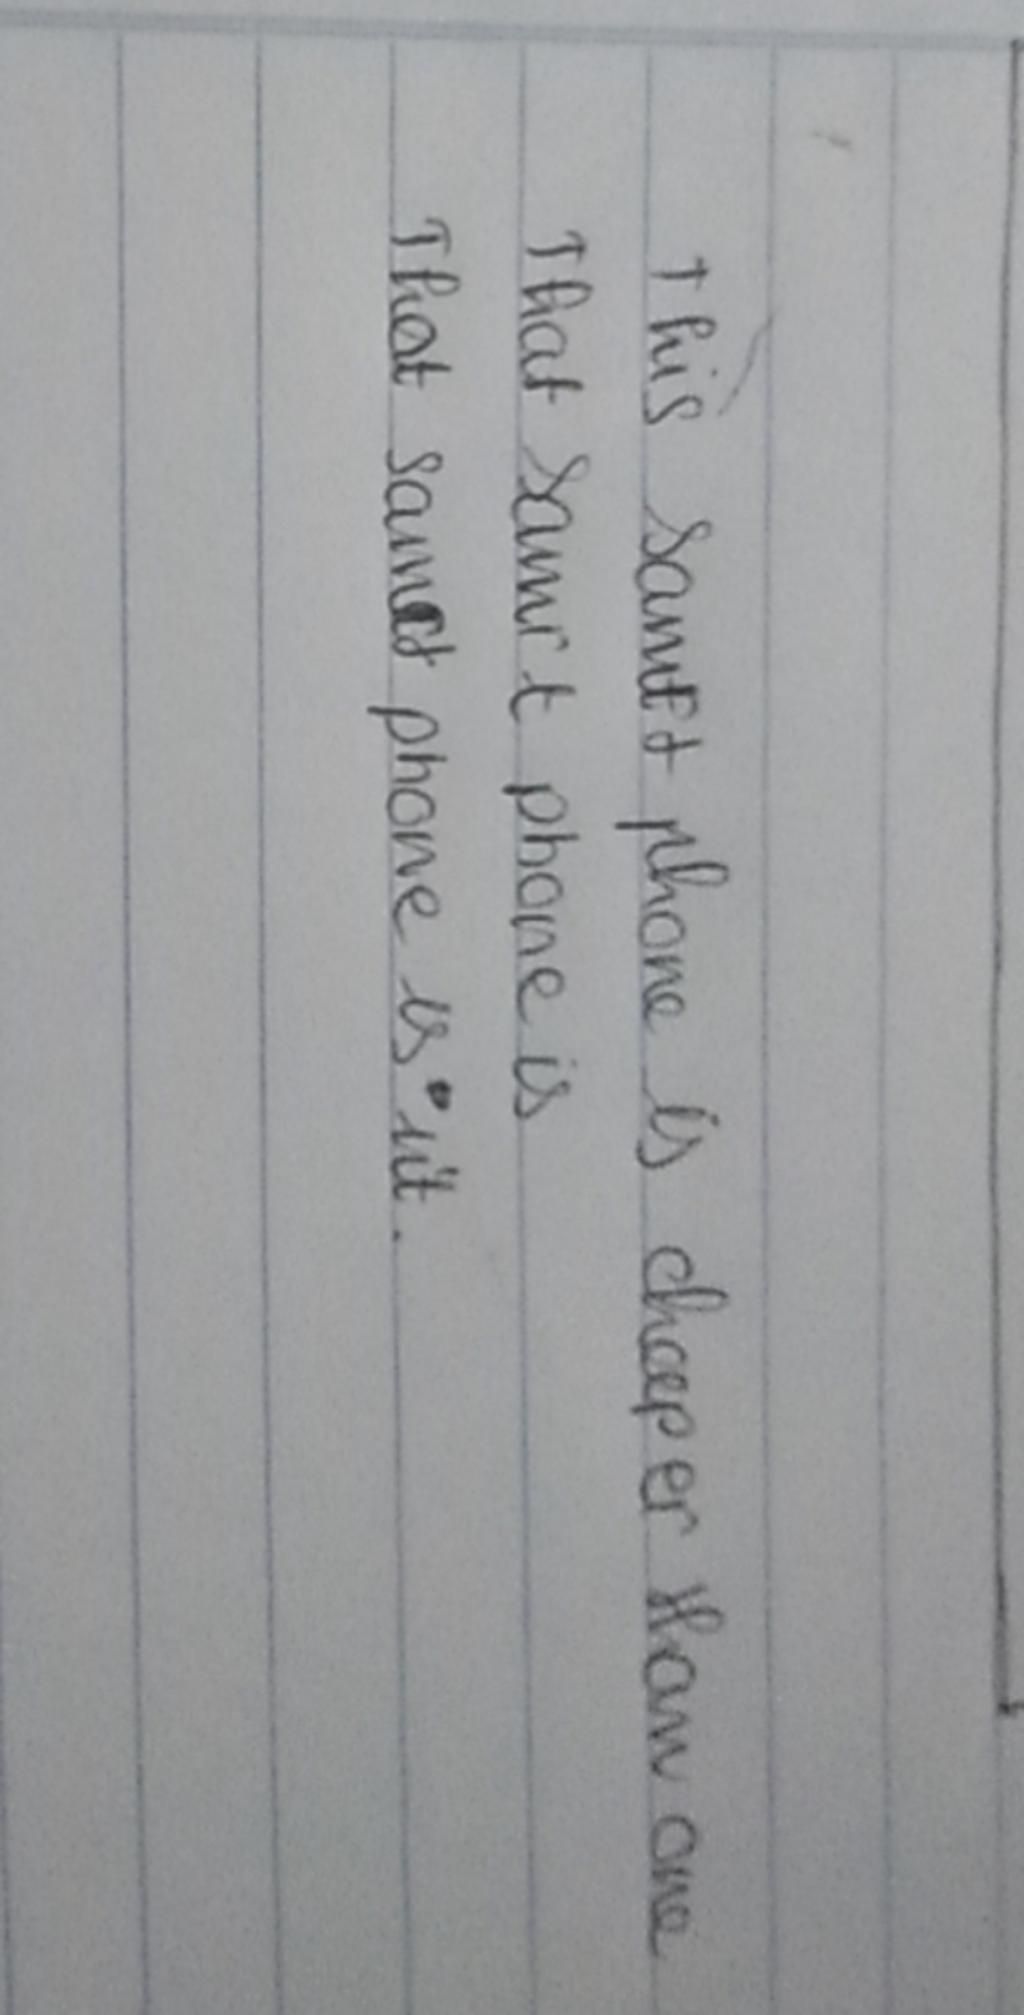 This samrt phone is chaeper than one
That samrt phone is
That samrt phone is it.